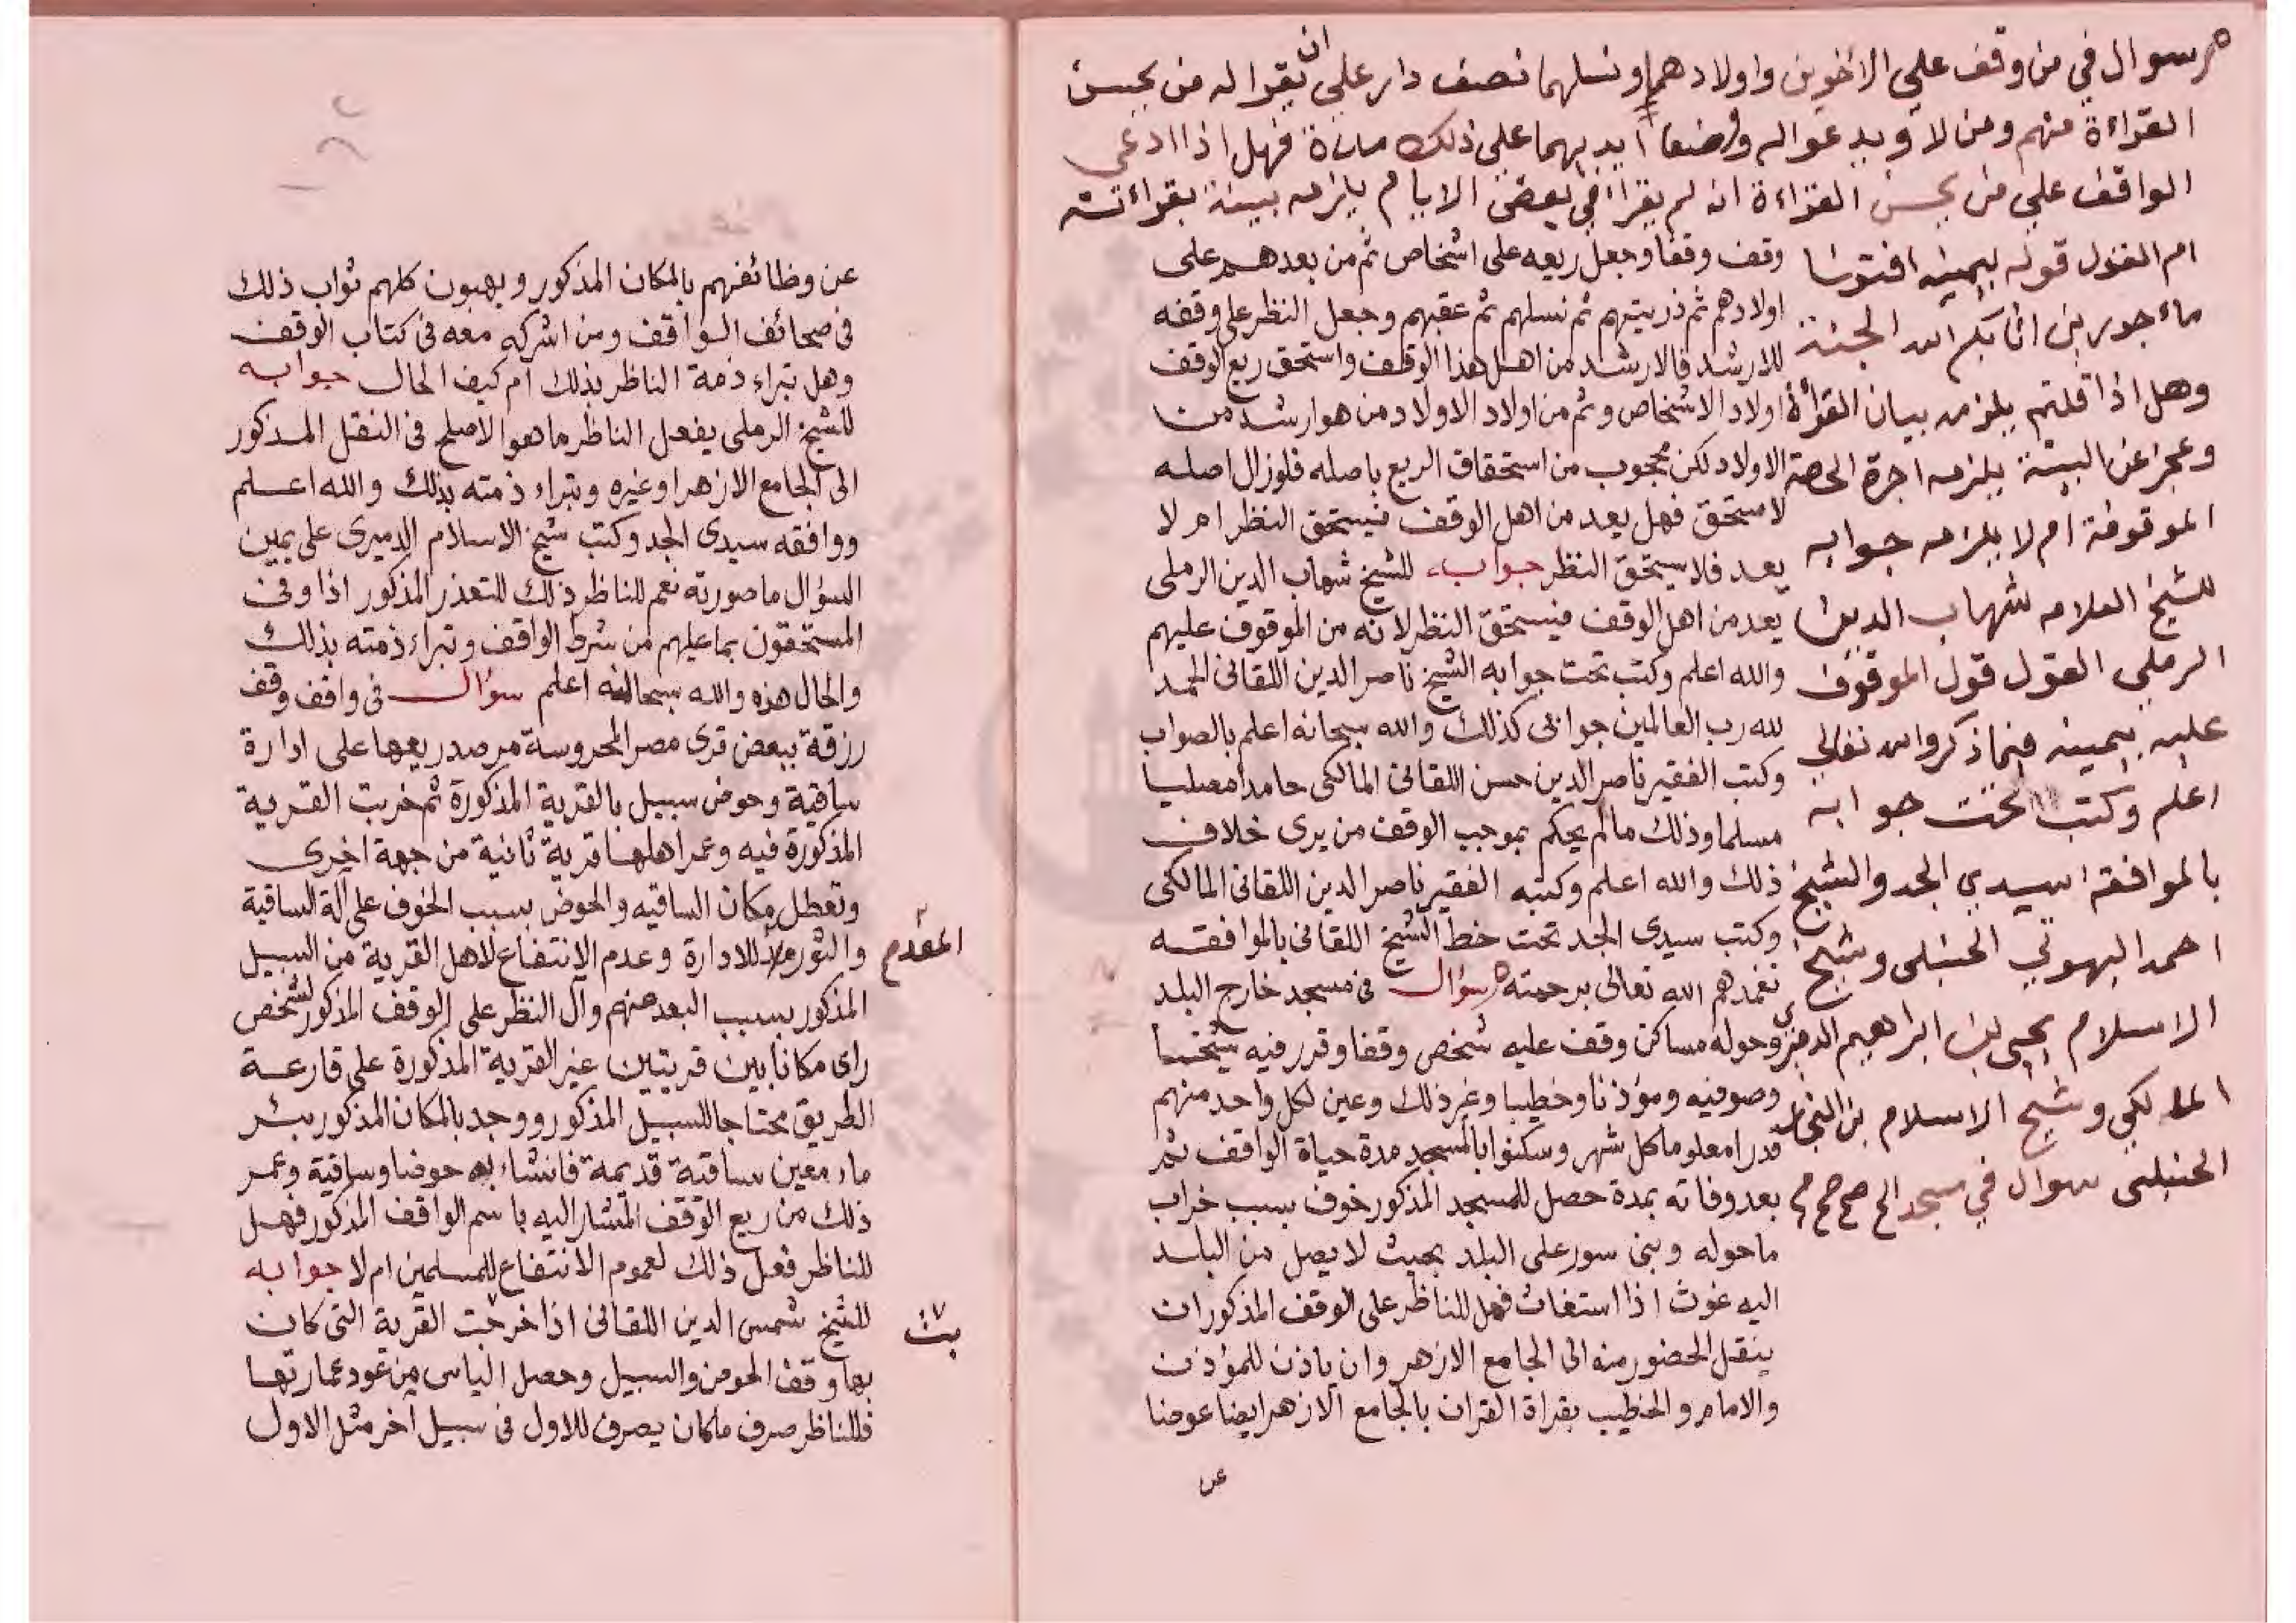 سوال في من وقف علي الاخوين واولادهما ونسلهما نصف دار علي ان يقرا له من يحسن
القراءة منهم ومن لا ويدعو اله ووضعا ايديهما علي ذلك مدة فهل اذا ادعى
الواقف علي من يحسن القراءة انه لم يقرا في بعض الايام يلزمه بينة بقراءته
ام القول قوله بيمينه افتونا
ماءجورين اثابكم الله الجنة
وهل اذا قلتم يلزمه بيان القرأة
وعجز عن البينة يلزمه اجرة الحصة
الموقوفة ام لا يلزمه جوابه
للشيخ العلامه شهاب الدين
الرملي القول قول الموقوف
عليه بيمينه فيما ذكر والله تعالي
اعلم وكتب تحت جوابه
بالموافقة سيدي الجد والشيخ
احمد البهوتي الحنبلى وشيخ
الاسلام يحيى بن ابراهيم الدميري
المالكي وشيخ الاسلام بن النجار
الحنبلى سوال في مسجد الخ صح صح
وقف وقفا وجعل ريعه على اشخاص ثم من بعدهم على
اولادهم ثم ذريتهم ثم نسلهم ثم عقبهم وجعل النظر على وقفه
للارشد فالارشد من اهل هذا الوقف واستحق ريع الوقف
اولاد الاشخاص وثم من اولاد الاولاد من هو ارشد من
الاولاد لكن محجوب من استحقاق الريع باصله فلو زال اصله
لاستحق فهل يعد من اهل الوقف فيستحق النظر ام لا
يعد فلا يستحق النظر جوابه للشيخ شهاب الدين الرملى
يعد من اهل الوقف فيستحق النظر لانه من الموقوف عليهم
والله اعلم وكتب تحت جوابه الشيخ ناصر الدين اللقانى الحمد
لله رب العالمين جوابى كذلك والله سبحانه اعلم بالصواب
وكتب الفقير ناصر الدين حسن اللقانى المالكى حامدا مصليا
مسلما وذلك مالم يحكم بموجب الوقف من يرى خلاف
ذلك والله اعلم وكتبه الفقير ناصر الدين اللقانى المالكى
وكتب سيدى الجد تحت خط الشيخ اللقانى بالموافقه
تغمدهم الله تعالى برحمته سؤال فى مسجد خارج البلد
وحوله مساكن وقف عليه شخص وقفا وقرر فيه شيخا
وصوفيه ومؤذنا وخطيبا وغير ذلك وعين لكل واحد منهم
قدرا معلوما كل شهر وسكنوا بالمسجد مدة حياة الواقف ثم
بعد وفاته بمدة حصل للمسجد المذكور خوف بسبب خراب
ماحوله وبنى سور على البلد بحيث لا يصل من البلد
اليه غوث اذا استغاث فهل للناظر على الوقف المذكور ان
ينقل الحضور منه الى الجامع الازهر وان ياذن للمؤذن
والامام والخطيب بقراة القران بالجامع الازهر ايضا عوضا
عن
عن وظائفهم بالمكان المذكور ويهبون كلهم ثواب ذلك
فى صحائف الواقف ومن اشركه معه فى كتاب الوقف
وهل تبراء ذمة الناظر بذلك ام كيف الحال جوابه
للشيخ الرملى يفعل الناظر ما هو الاصلح فى النقل المذكور
الى الجامع الازهر او غيره وتبراء ذمته بذلك والله اعلم
ووافقه سيدى الجد وكتب شيخ الاسلام الدميرى على يمين
السؤال ما صورته نعم للناظر ذلك للتعذر المذكور اذا وفى
المستحقون بما عليهم من شرط الواقف وتبراء ذمته بذلك
والحال هذه والله سبحانه اعلم سؤال فى واقف وقف
رزقة ببعض قرى مصر المحروسة مرصد ريعها على ادارة
ساقية وحوض سبيل بالقرية المذكورة ثم خربت القرية
المذكورة فيه وعمر اهلها قرية ثانية من جهة اخرى
وتعطل مكان الساقيه والحوض بسبب الخوف على آلة الساقية
والثور للادارة وعدم الانتفاع لاهل القرية من السبيل
المقدم
المذكور بسبب البعد عنهم وآل النظر على الوقف المذكور لشخص
راى مكانا بين قريتين غير القرية المذكورة على قارعة
الطريق محتاجا للسبيل المذكور ووجد بالمكان المذكور بئر
ماء معين ساقية قديمة فانشاء به حوضا وساقية وعمر
ذلك من ريع الوقف المشار اليه باسم الواقف المذكور فهل
للناظر فعل ذلك لعموم الانتفاع للمسلمين ام لا جوابه
للشيخ شمس الدين اللقانى اذا خرجت القرية التى كان
بت
بها وقف الحوض والسبيل وحصل الياس من عود عمارتها
فللناظر صرف ماكان يصرف للاول فى سبيل آخر مثل الاول